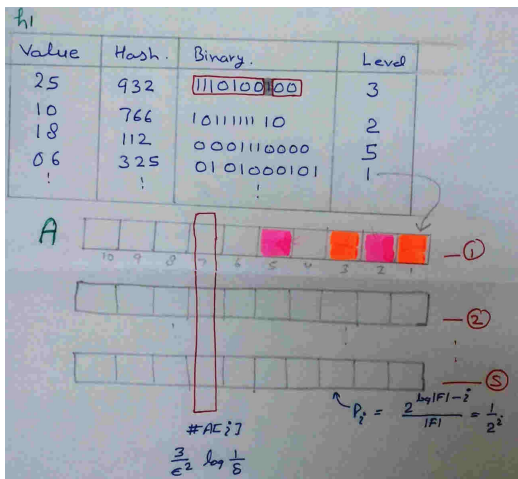 h1
Value Hash. Binary. Level
25 932 1110100100 3
10 766 1011111110 2
18 112 0001110000 5
06 325 0101000101 1
! ! !
A
10 9 8 7 6 5 4 3 2 1 — ①
— ②
— ⑤
#A[i]
P_i = 2^{log|F|-i} / |F| = 1 / 2^i
3/ε² log 1/δ